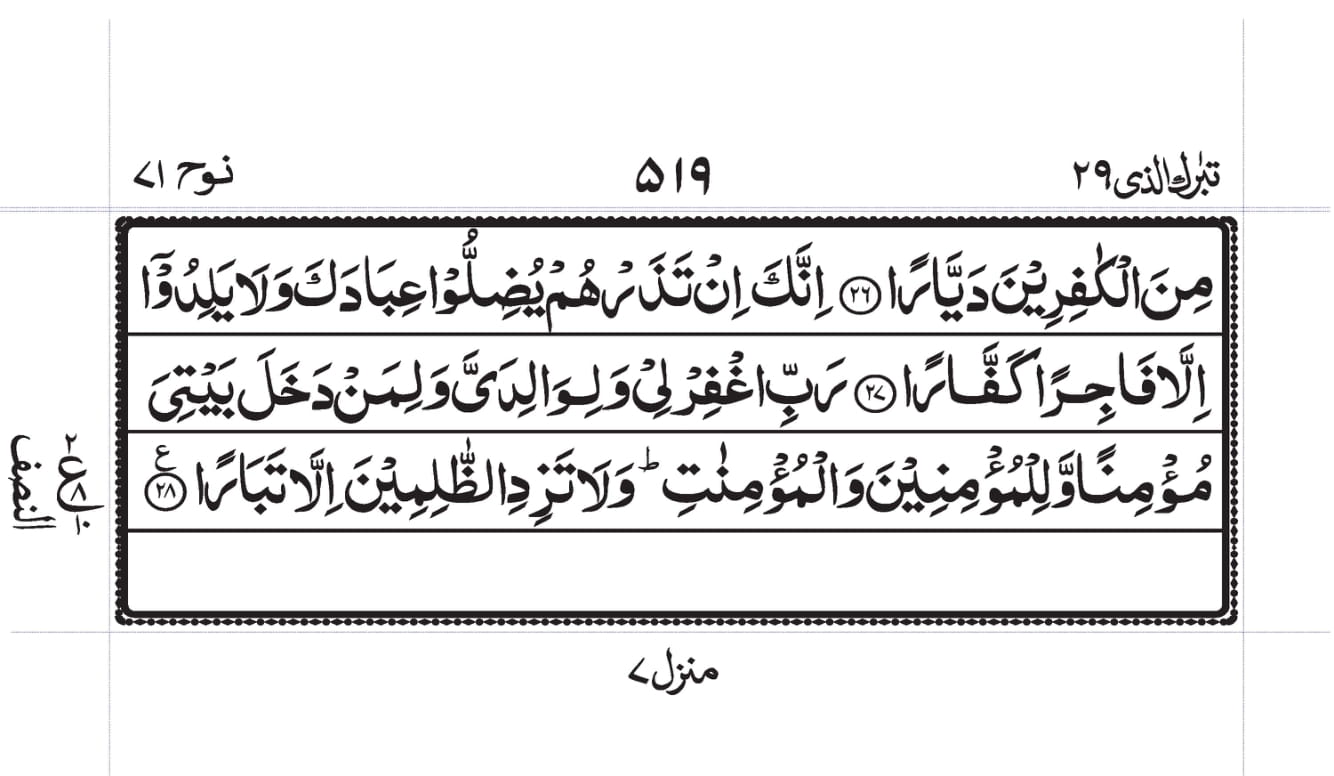 تبٰرك الذی ۲۹
۵۱۹
نوح ۷۱
مِنَ الْكٰفِرِيْنَ دَيَّارًا ﴿۲۶﴾ اِنَّكَ اِنْ تَذَرْهُمْ يُضِلُّوْا عِبَادَكَ وَلَا يَلِدُوْۤا
اِلَّا فَاجِرًا كَفَّارًا ﴿۲۷﴾ رَبِّ اغْفِرْ لِىْ وَلِوَالِدَىَّ وَلِمَنْ دَخَلَ بَيْتِىَ
مُؤْمِنًا وَّلِلْمُؤْمِنِيْنَ وَالْمُؤْمِنٰتِ ؕ وَلَا تَزِدِ الظّٰلِمِيْنَ اِلَّا تَبَارًا ﴿۲۸﴾ ع
۲ ع ۸ ۱۰
النصف
منزل ۷